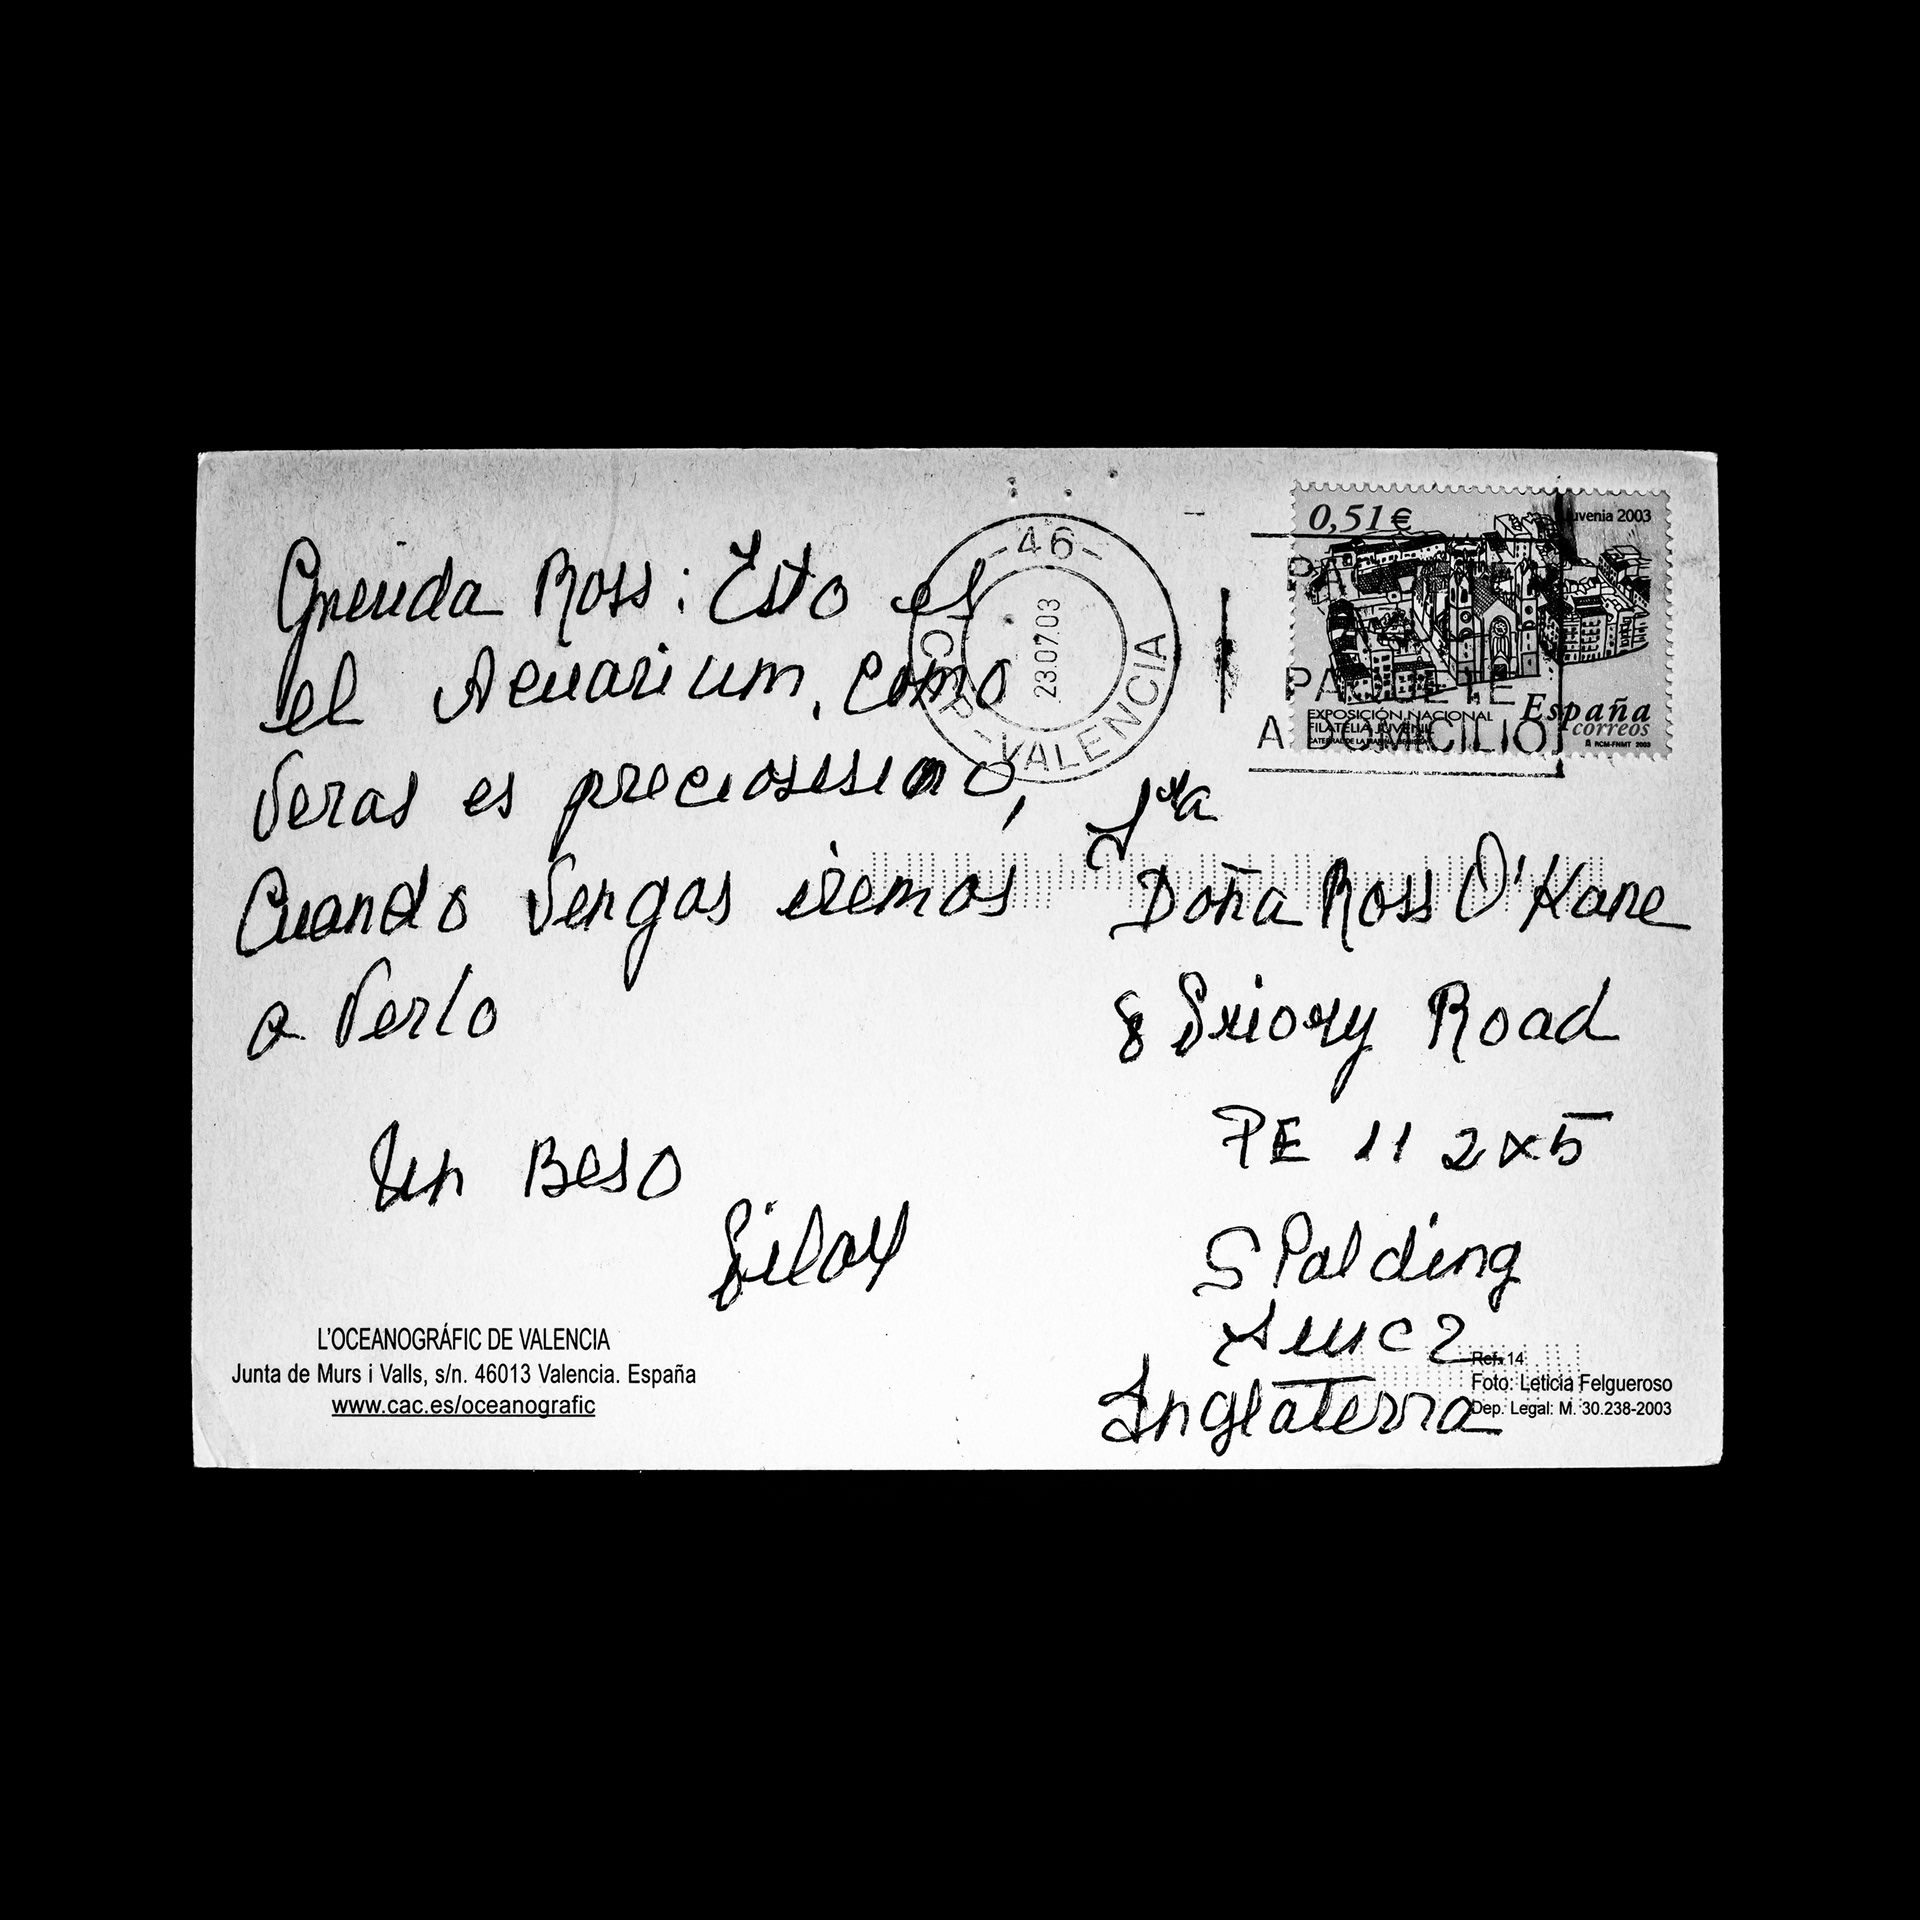 Querida Ross: Esto es
el Acuarium, como
Veras es preciosisimo,
Cuando Vengas iremos
a Verlo
Un Beso
L'OCEANOGRÁFIC DE VALENCIA
Junta de Murs i Valls, s/n. 46013 Valencia. España
www.cac.es/oceanografic
-46-
23.07.03
C.P.-VALENCIA
0,51€
uvenia 2003
PAQUETE
A DOMICILIO
EXPOSICIÓN NACIONAL
FILATELIA JUVENIL
España
correos
RCM-FNMT 2003
Sra
Doña Ross O'Kane
8 Priory Road
PE 11 2X5
SPalding
Inglaterra
Ref. 14
Foto: Leticia Felgueroso
Dep. Legal: M. 30.238-2003